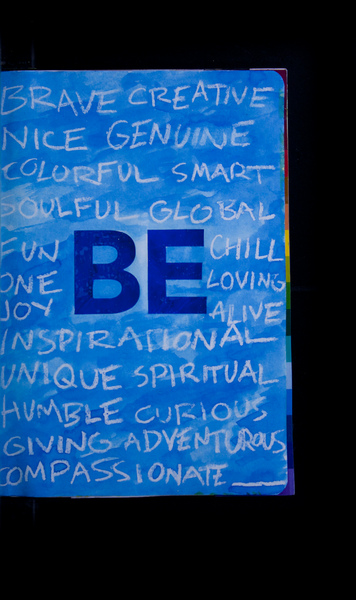 BRAVE CREATIVE
NICE GENUINE
COLORFUL SMART
SOULFUL GLOBAL
FUN BE CHILL
ONE LOVING
JOY ALIVE
INSPIRATIONAL
UNIQUE SPIRITUAL
HUMBLE CURIOUS
GIVING ADVENTUROUS
COMPASSIONATE ___